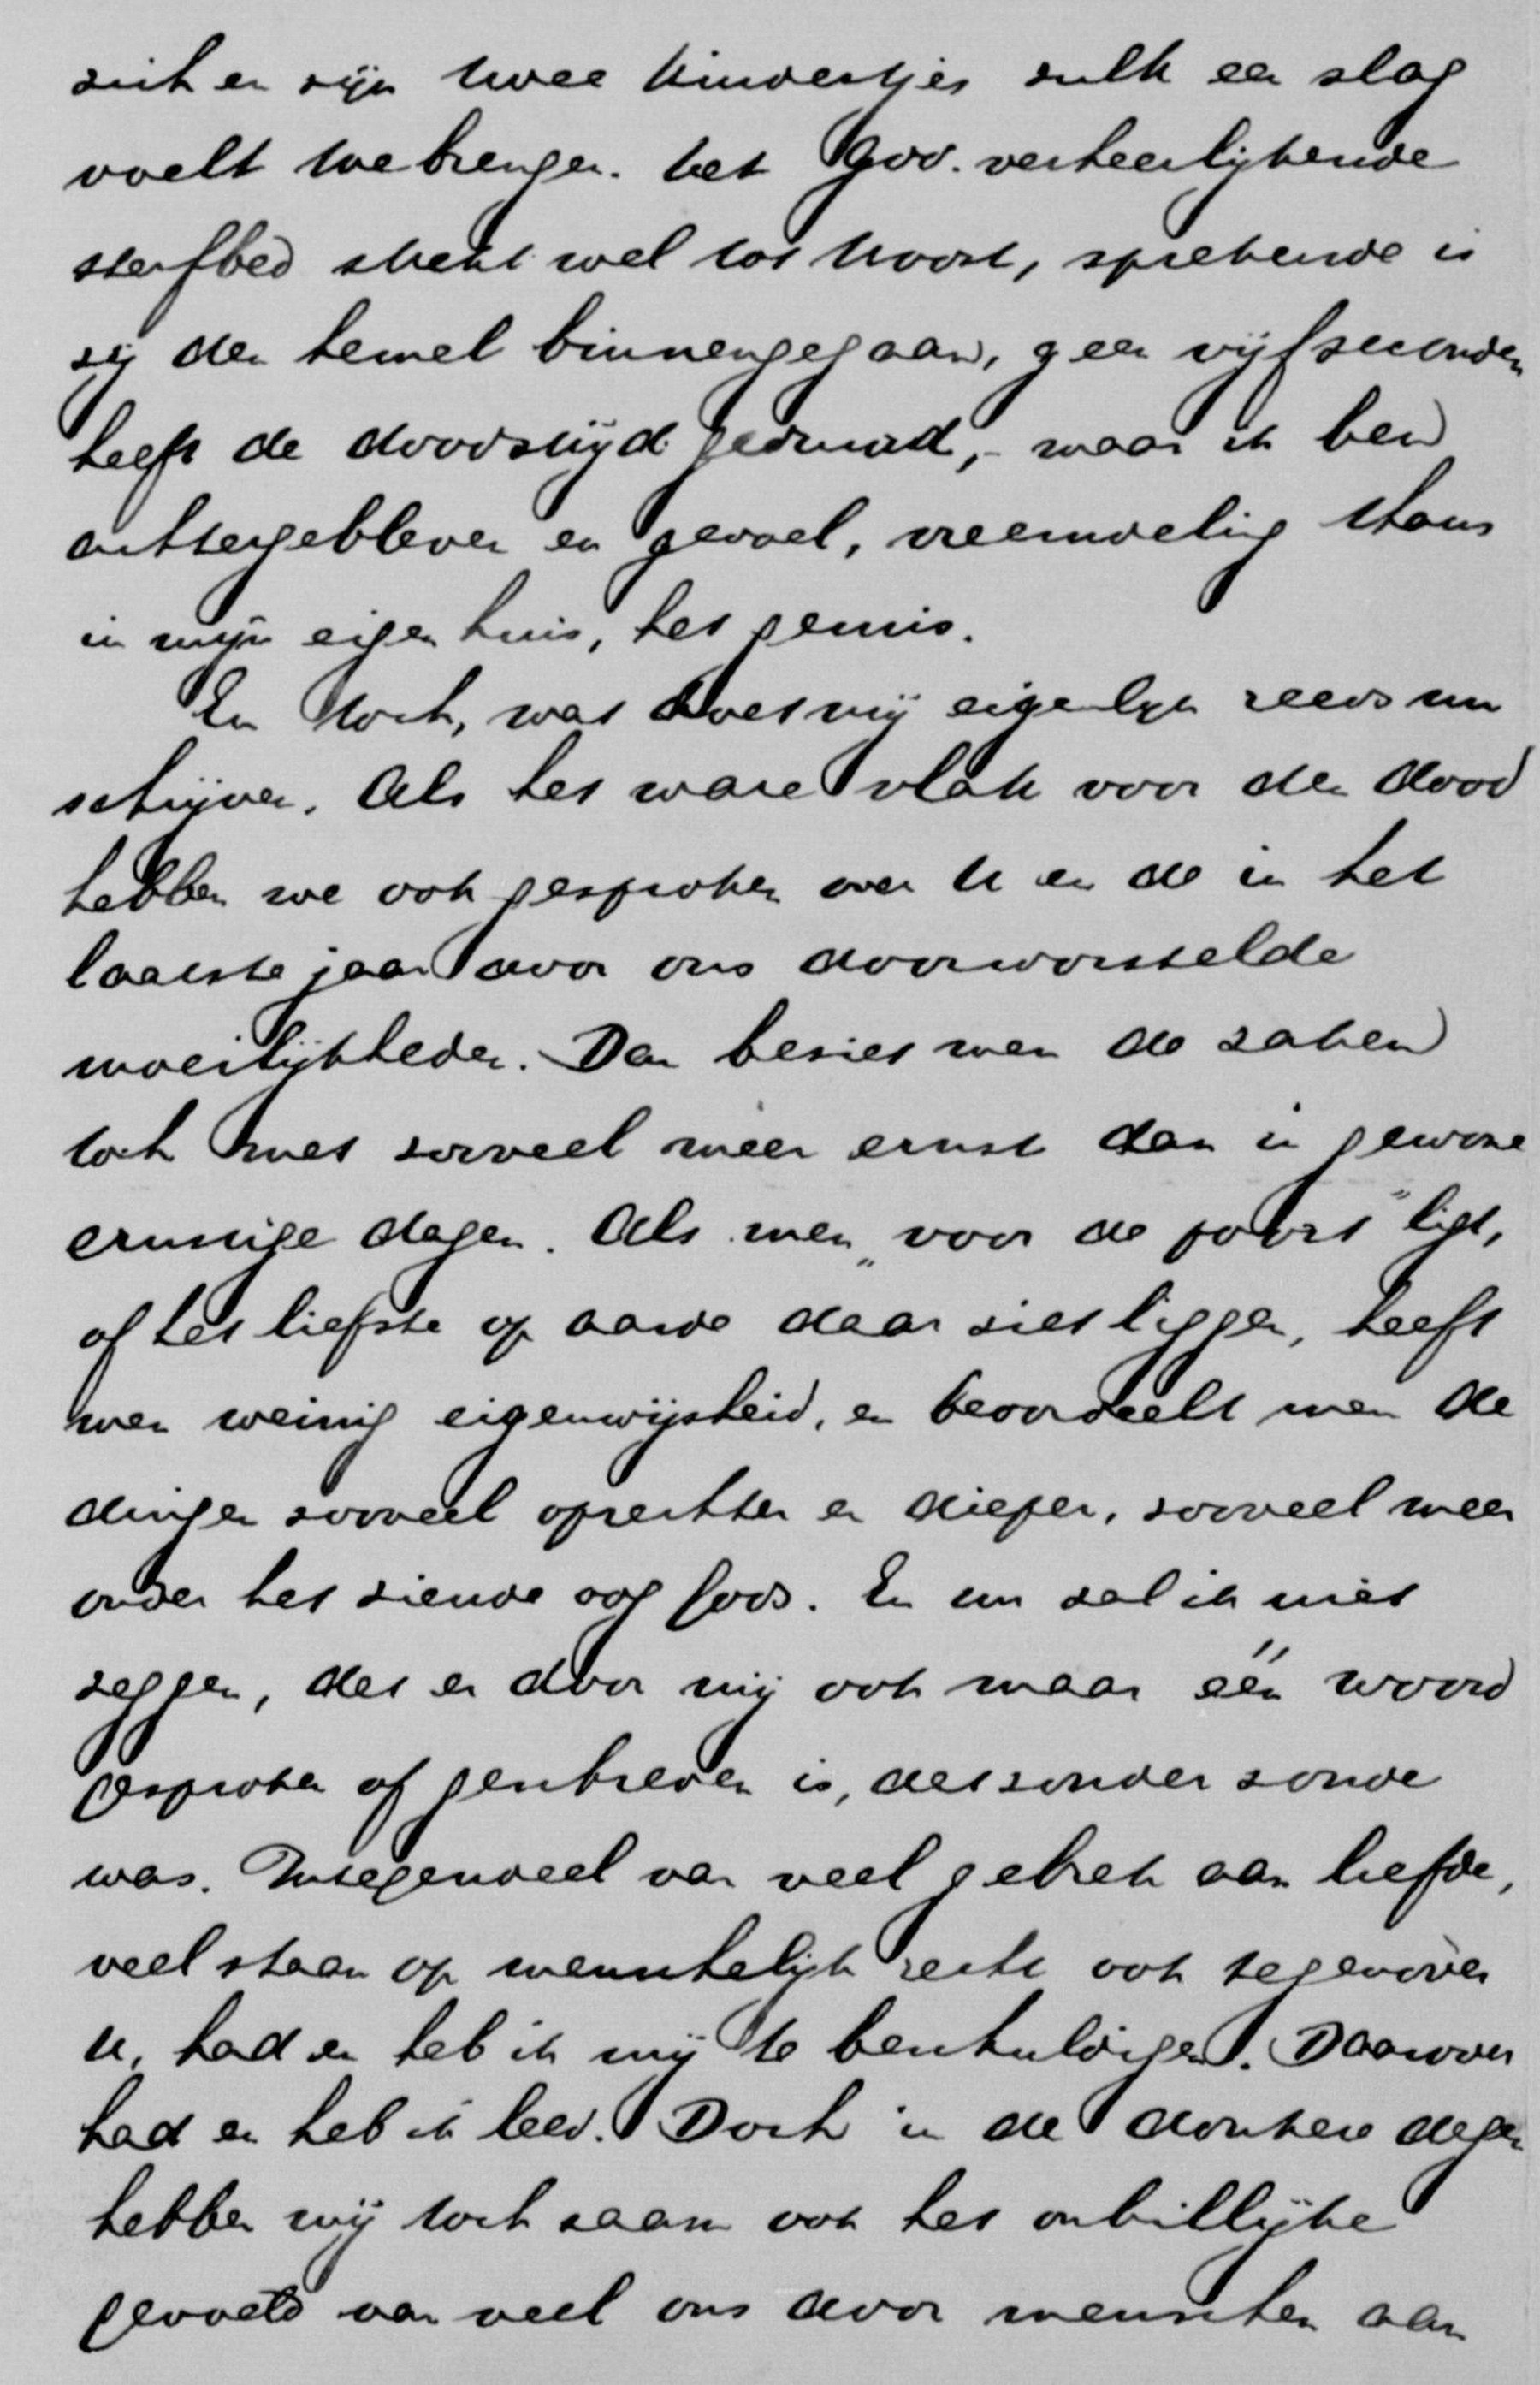 zich en zijn twee kindertjes zulk een slag
voelt toebrengen. Het God. verheerlijkende
sterfbed strekt wel tot troost, sprekende is
zij den hemel binnengegaan, geen vijf seconden
heeft de doodstrijd geduurd, - maar ik ben
achtergebleven en gevoel, vreemdeling thans
in mijn eigen huis, het gemis.
En toch, wat doet mij eigenlijk reeds nu
schrijven. Als het ware vlak voor den dood
hebben we ook gesproken over U en de in het
laatste jaar door ons doorworstelde
moeilijkheden. Dan beziet men de zaken
toch met zooveel meer ernst dan in gewone
ernstige dagen. Als men „voor de poort" ligt,
of het liefste op aarde daar ziet liggen, heeft
men weinig eigenwijsheid, en beoordeelt men de
dingen zooveel oprechter en dieper, zooveel meer
onder het ziende oog Gods. En nu zal ik niet
zeggen, dat er door mij ook maar één woord
gesproken of geschreven is, dat zonder zonde
was. Integendeel van veel gebrek aan liefde,
veel staan op menschelijk recht ook tegenover
U, had en heb ik mij te beschuldigen. Daarover
had en heb ik leed. Doch in de donkere dagen
hebben wij toch saam ook het onbillijke
gevoeld van veel ons door menschen aan